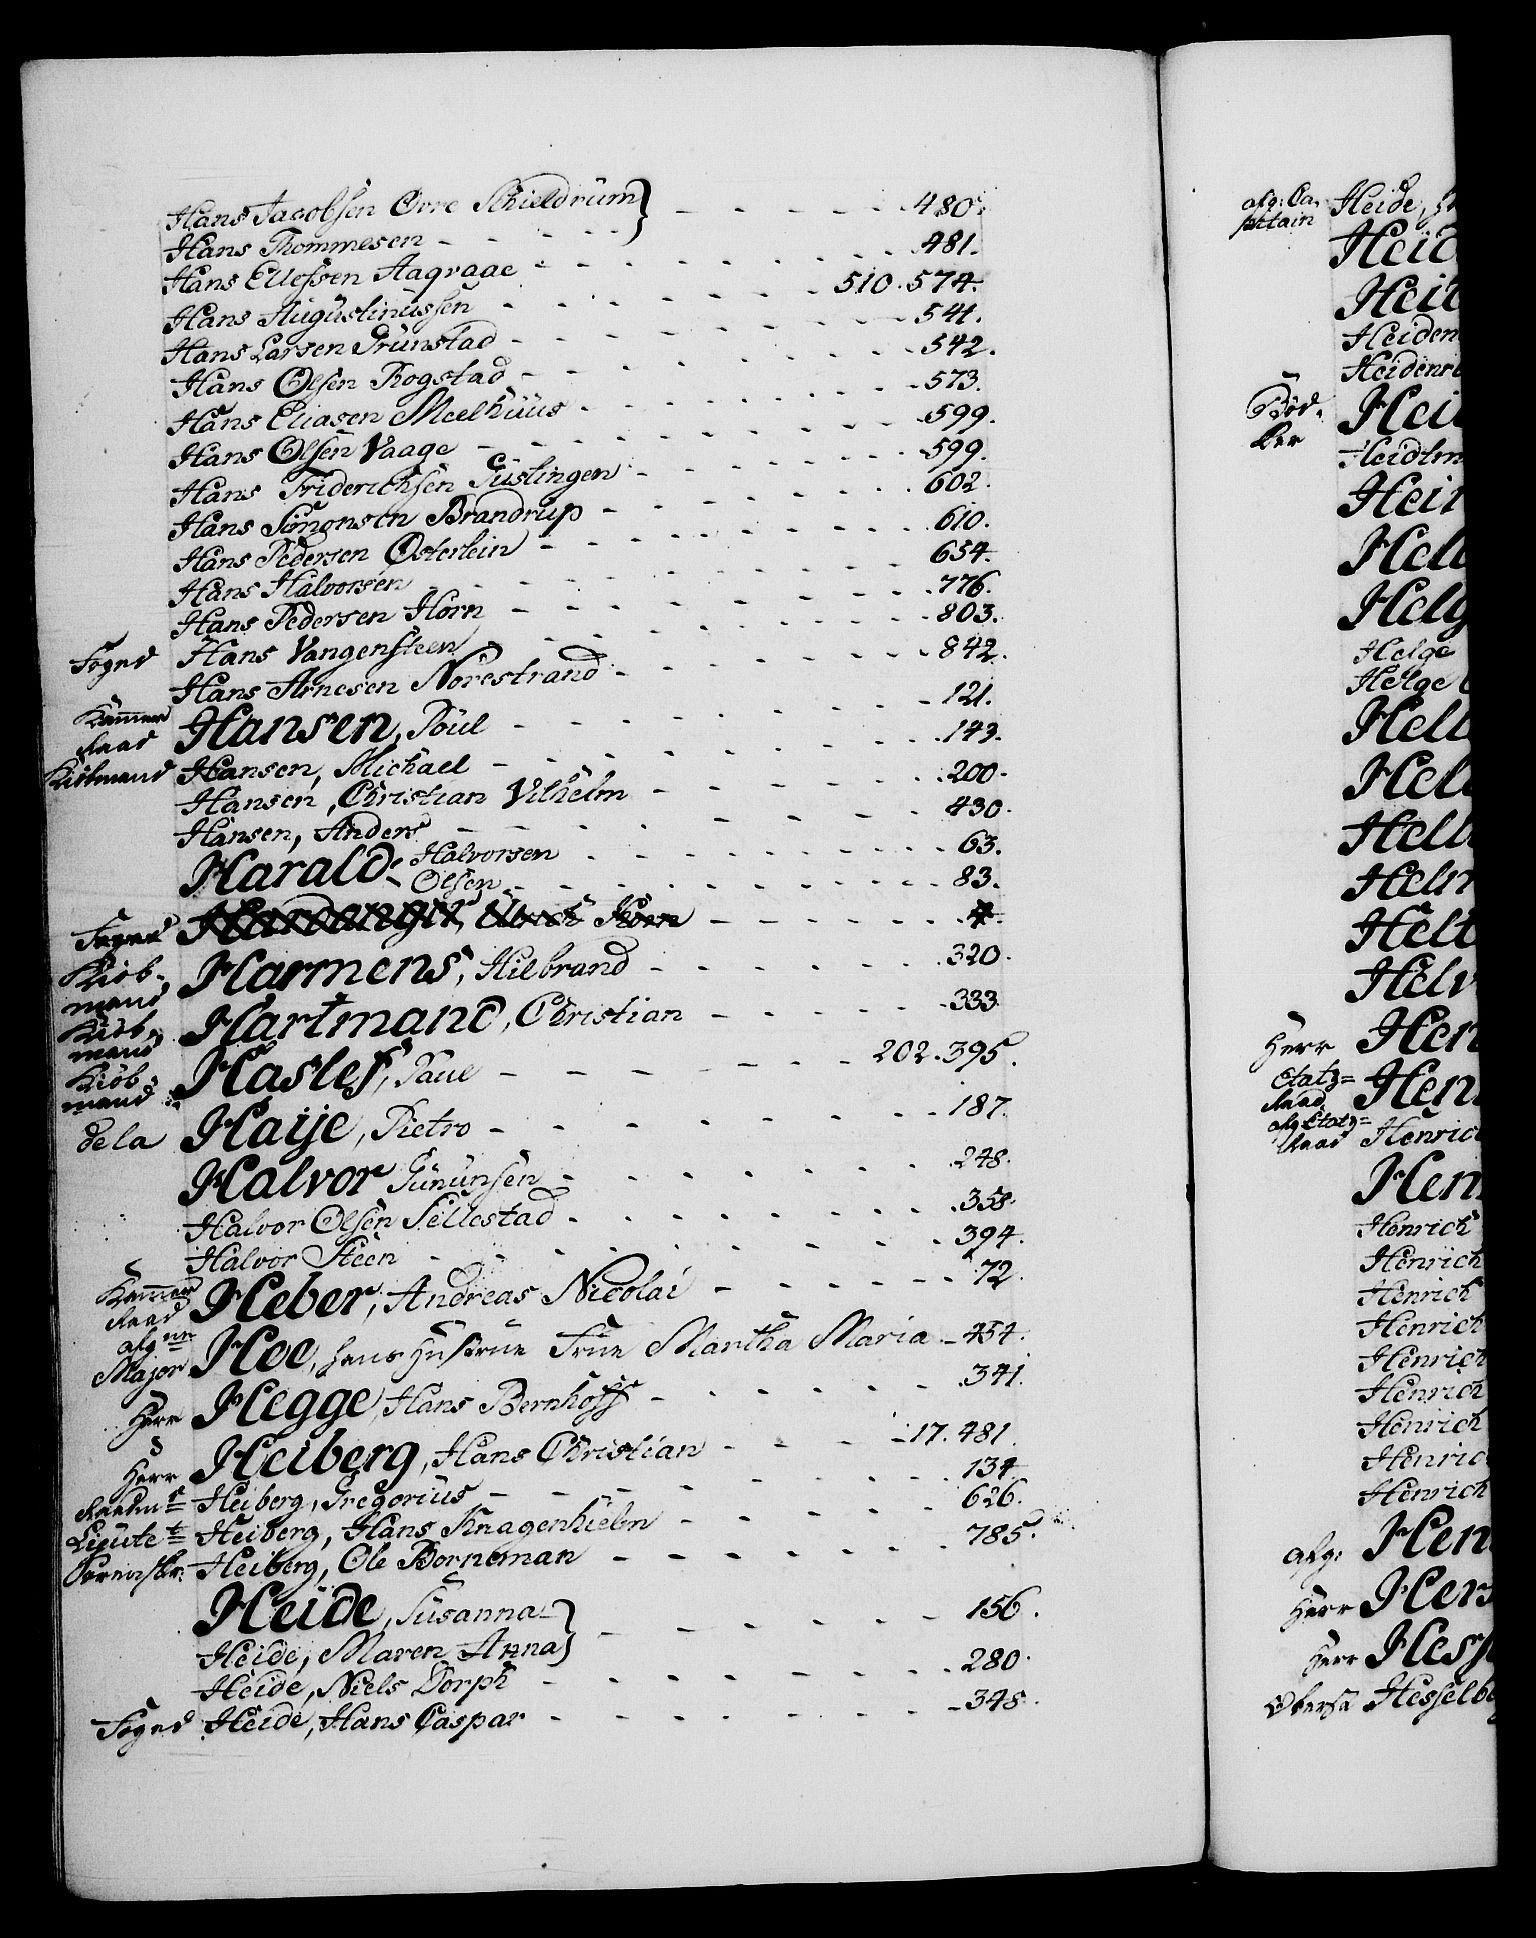 Hans Jacobsen Øvre Skieldrum } - - - - 480.
Hans Thommesen - - - - 
Hans Ellefsen Aagraae - - - - 481.
Hans Augustinussen - - - - 510. 574.
Hans Larsen Grünstad - - - - 541.
Hans Olsen Rogstad - - - - 542.
Hans Eliasen Meelhüüs - - - - 573.
Hans Olsen Vaage - - - - 599.
Hans Friderichsen Güslingen - - - - 599.
Hans Simonsen Brandrup - - - - 602.
Hans Pedersen Østerlein - - - - 610.
Hans Halvorsen - - - - 654.
Hans Pedersen Horn - - - - 776.
Foged Hans Vangensteen - - - - 803.
Hans Arnesen Norestrand - - - - 842.
Kammer Raad Hansen, Poul - - - - 121.
Kiöbmand Hansen, Michael - - - - 143.
Hansen, Christian Vilhelm - - - - 200.
Hansen, Anders - - - - 430.
Harald Halvorsen - - - - 63.
Olsen - - - - 83.
Foged Hardanger, Ulrich Korn - - - - 4.
Kiöb-
mand Harmens, Hilbrand - - - - 320.
Kiöb-
mand Hartmand, Christian - - - - 333.
Kiöb-
mand Haslef, Paul - - - - 202. 395.
de la Haije, Pietro - - - - 187.
Halvor Gununsen - - - - 248.
Halvor Olsen Sellestad - - - - 358.
Halvor Steen - - - - 394.
Kammer Raad Heber, Andreas Nicolai - - - - 72.
afg
Major Hoe, hans Hustrue Frue Martha Maria - 454.
Herr Hegge, Hans Bernhoff - - - - 341.
Herr Heiberg, Hans Christian - - - - 17. 481.
Raadm Heiberg, Gregorius - - - - 134
Lieute Heiberg, Hans Knagenhielm - - - - 626.
Sorenskr: Heiberg, Ole Borneman - - - - 785.
Heide, Susanna } - - - - 156.
Heide, Maren Anna
Heide, Niels Dorph - - - - 280.
Foged Heide, Hans Caspar - - - - 348.
afg: Ca-
pitain Heide,
Heid
Heid
Heiden
Heidenr
Böd-
ker Hei
Heidtm
Hein
Hel
Helg
Helge
Helge
Hell
Hel
Hell
Helm
Helt
Helv
Herr Hen
Etatz=
Raad Hen
afg Etatz=
Raad Henric
Hen
Henrich
Henrich
Henrich
Henrich
Henrich
Henrich
Henrich
Henric
Henrich
afg: Hen
Herr Hers
Herr Hess
Oberst Hesselb